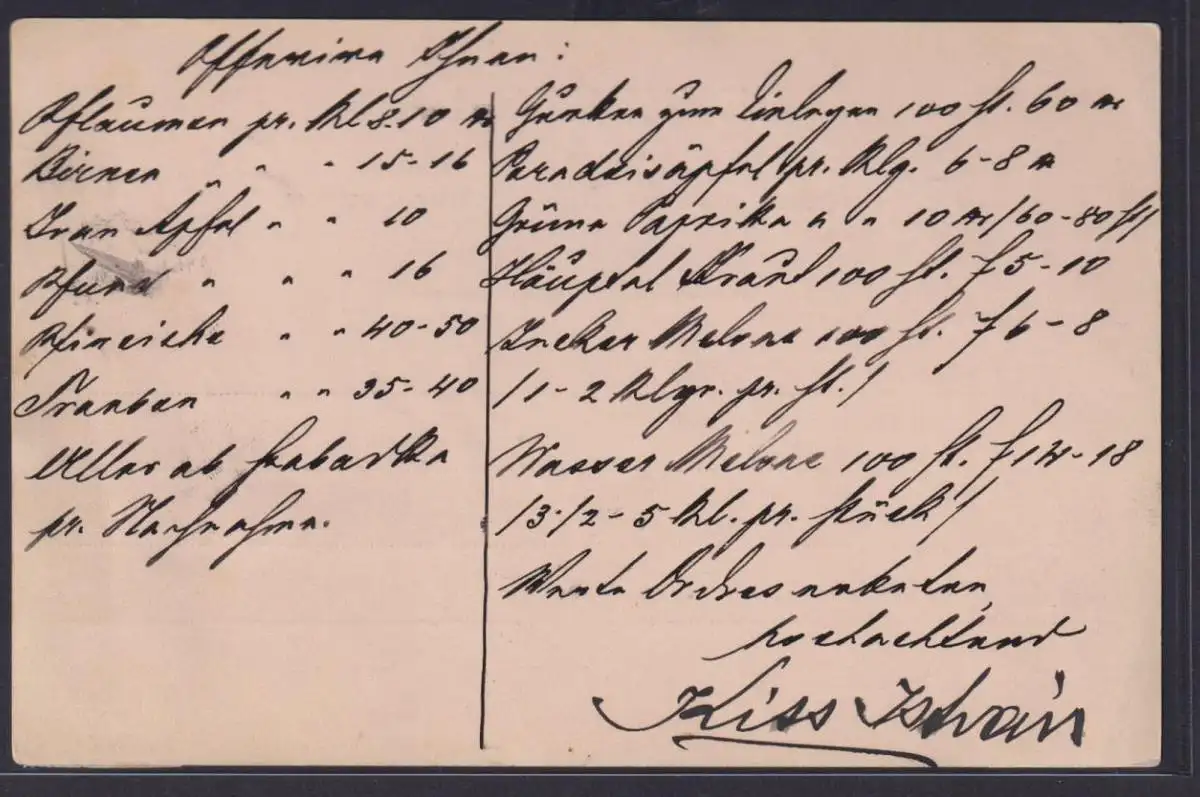 Offerire Ihnen:
Pflaumen pr. Kl 8-10 xr
Birnen " " " 15-16
Äpfel " " 10
" " " 16
Pfirsiche " " 40-50
Trauben " " 35-40
Alles ab Szabadka
pr. Nachnahme.
Gurken zum Einlegen 100 St. 60 xr
Paradeisäpfel pr. Klg. 6-8 xr
Grüne Paprika " " 10 xr /60-80 St/
Häuptel Kraut 100 St. f 5-10
Zucker Melone 100 St. f 6-8
/1-2 Klgr. pr. St./
Wasser Melone 100 St. f 14-18
/3 1/2-5 Kl. pr. Stück/
Werte Ordres erbeten
hochachtend
Kiss István